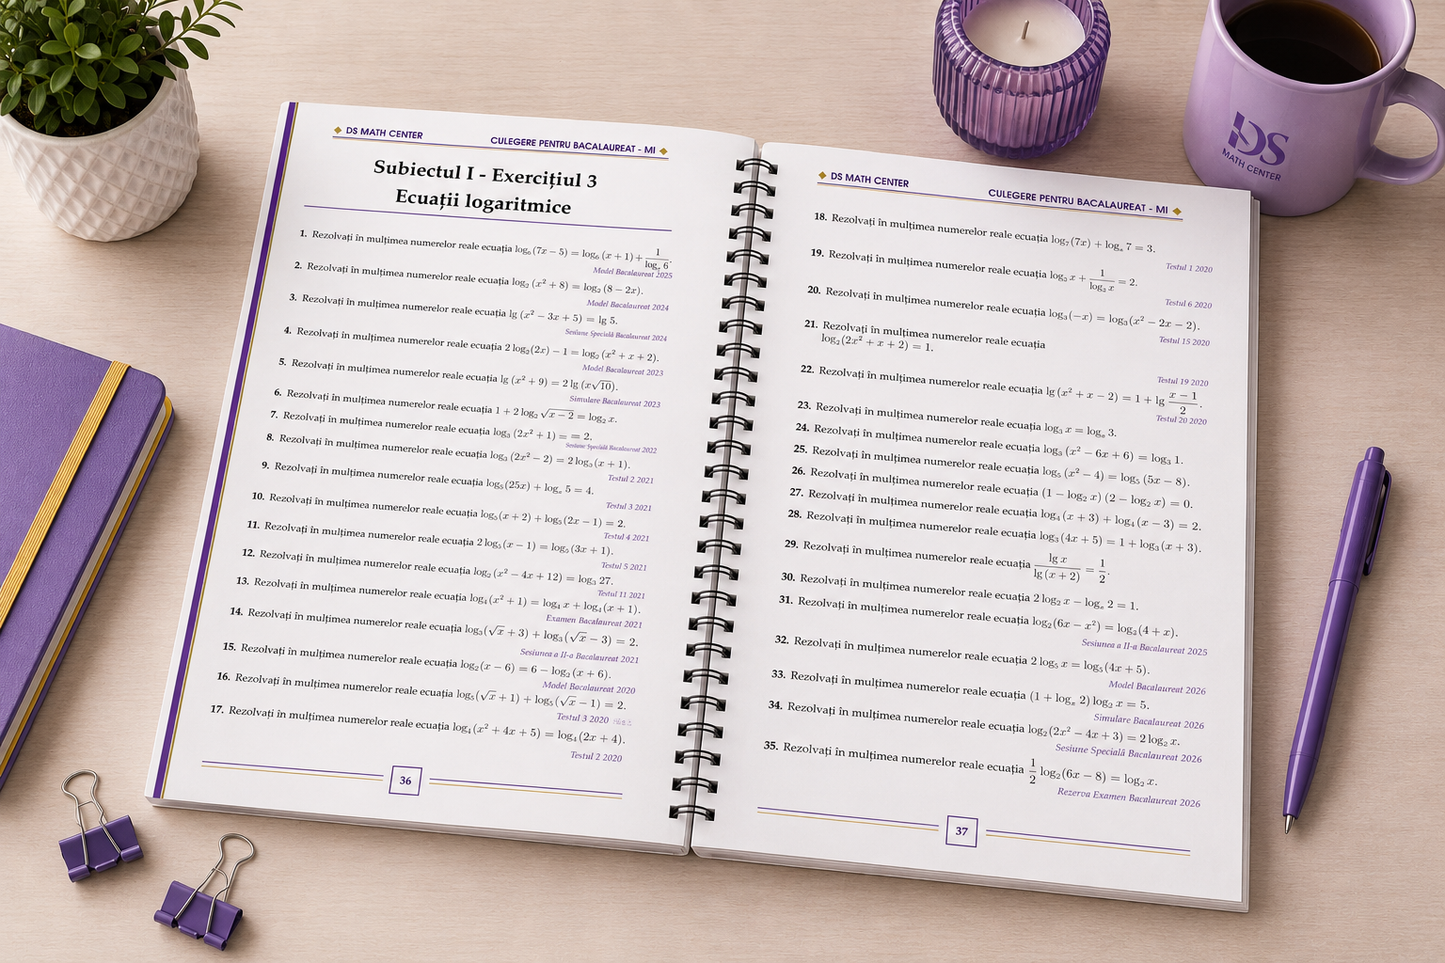 ◆ DS MATH CENTER CULEGERE PENTRU BACALAUREAT - MI ◆
Subiectul I - Exercițiul 3
Ecuații logaritmice
1. Rezolvați în mulțimea numerelor reale ecuația log₆(7x − 5) = log₆(x + 1) + 1/logₓ 6.
Model Bacalaureat 2025
2. Rezolvați în mulțimea numerelor reale ecuația log₂(x² + 8) = log₂(8 − 2x).
Model Bacalaureat 2024
3. Rezolvați în mulțimea numerelor reale ecuația lg(x² − 3x + 5) = lg 5.
Sesiune Specială Bacalaureat 2024
4. Rezolvați în mulțimea numerelor reale ecuația 2 log₂(2x) − 1 = log₂(x² + x + 2).
Model Bacalaureat 2023
5. Rezolvați în mulțimea numerelor reale ecuația lg(x² + 9) = 2 lg(x√10).
Simulare Bacalaureat 2023
6. Rezolvați în mulțimea numerelor reale ecuația 1 + 2 log₂ √(x − 2) = log₂ x.
7. Rezolvați în mulțimea numerelor reale ecuația log₃(2x² + 1) = = 2.
Sesiune Specială Bacalaureat 2022
8. Rezolvați în mulțimea numerelor reale ecuația log₃(2x² − 2) = 2 log₃(x + 1).
Testul 2 2021
9. Rezolvați în mulțimea numerelor reale ecuația log₅(25x) + logₓ 5 = 4.
Testul 3 2021
10. Rezolvați în mulțimea numerelor reale ecuația log₅(x + 2) + log₅(2x − 1) = 2.
Testul 4 2021
11. Rezolvați în mulțimea numerelor reale ecuația 2 log₅(x − 1) = log₅(3x + 1).
Testul 5 2021
12. Rezolvați în mulțimea numerelor reale ecuația log₂(x² − 4x + 12) = log₃ 27.
Testul 11 2021
13. Rezolvați în mulțimea numerelor reale ecuația log₄(x² + 1) = log₄ x + log₄(x + 1).
Examen Bacalaureat 2021
14. Rezolvați în mulțimea numerelor reale ecuația log₃(√x + 3) + log₃(√x − 3) = 2.
Sesiunea a II-a Bacalaureat 2021
15. Rezolvați în mulțimea numerelor reale ecuația log₂(x − 6) = 6 − log₂(x + 6).
Model Bacalaureat 2020
16. Rezolvați în mulțimea numerelor reale ecuația log₅(√x + 1) + log₅(√x − 1) = 2.
Testul 3 2020
17. Rezolvați în mulțimea numerelor reale ecuația log₄(x² + 4x + 5) = log₄(2x + 4).
Testul 2 2020
36
◆ DS MATH CENTER CULEGERE PENTRU BACALAUREAT - MI ◆
18. Rezolvați în mulțimea numerelor reale ecuația log₇(7x) + logₓ 7 = 3.
Testul 1 2020
19. Rezolvați în mulțimea numerelor reale ecuația log₂ x + 1/log₂ x = 2.
Testul 6 2020
20. Rezolvați în mulțimea numerelor reale ecuația log₃(−x) = log₃(x² − 2x − 2).
Testul 15 2020
21. Rezolvați în mulțimea numerelor reale ecuația
log₂(2x² + x + 2) = 1.
Testul 19 2020
22. Rezolvați în mulțimea numerelor reale ecuația lg(x² + x − 2) = 1 + lg (x − 1)/2.
Testul 20 2020
23. Rezolvați în mulțimea numerelor reale ecuația log₃ x = logₓ 3.
24. Rezolvați în mulțimea numerelor reale ecuația log₃(x² − 6x + 6) = log₃ 1.
25. Rezolvați în mulțimea numerelor reale ecuația log₅(x² − 4) = log₅(5x − 8).
26. Rezolvați în mulțimea numerelor reale ecuația (1 − log₂ x)(2 − log₂ x) = 0.
27. Rezolvați în mulțimea numerelor reale ecuația log₄(x + 3) + log₄(x − 3) = 2.
28. Rezolvați în mulțimea numerelor reale ecuația log₃(4x + 5) = 1 + log₃(x + 3).
29. Rezolvați în mulțimea numerelor reale ecuația lg x/lg(x + 2) = 1/2.
30. Rezolvați în mulțimea numerelor reale ecuația 2 log₂ x − logₓ 2 = 1.
31. Rezolvați în mulțimea numerelor reale ecuația log₂(6x − x²) = log₂(4 + x).
Sesiunea a II-a Bacalaureat 2025
32. Rezolvați în mulțimea numerelor reale ecuația 2 log₅ x = log₅(4x + 5).
Model Bacalaureat 2026
33. Rezolvați în mulțimea numerelor reale ecuația (1 + logₓ 2) log₂ x = 5.
Simulare Bacalaureat 2026
34. Rezolvați în mulțimea numerelor reale ecuația log₂(2x² − 4x + 3) = 2 log₂ x.
Sesiune Specială Bacalaureat 2026
35. Rezolvați în mulțimea numerelor reale ecuația 1/2 log₂(6x − 8) = log₂ x.
Rezerva Examen Bacalaureat 2026
37
DS
MATH CENTER